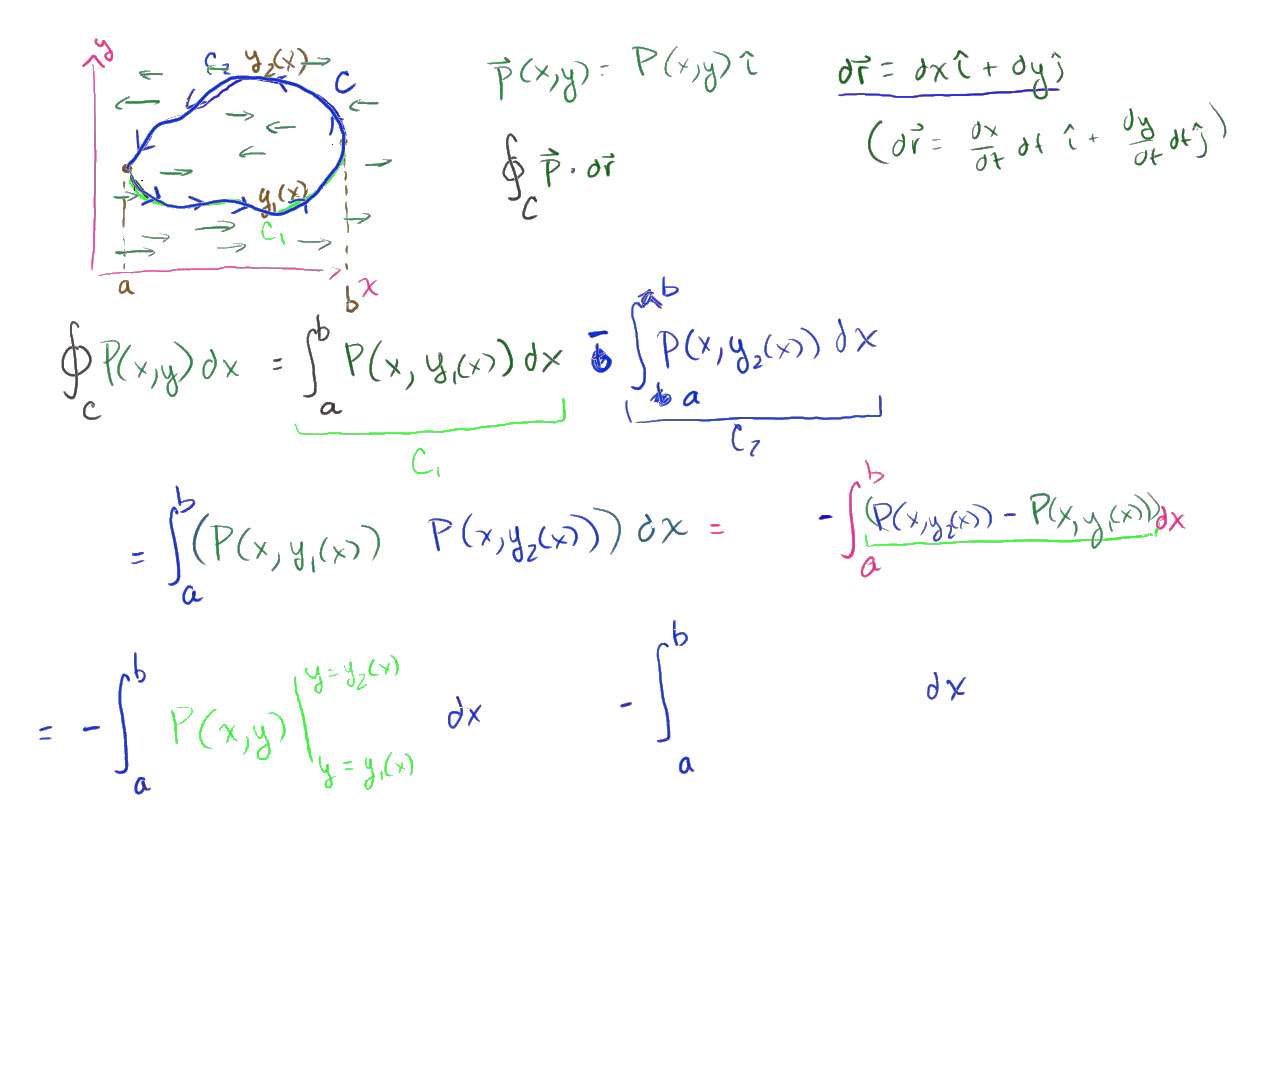 y
C₂ y₂(x) C
y₁(x)
C₁
a b x
p⃗(x,y) = P(x,y) î
∮_C p⃗ · dr⃗
dr⃗ = dx î + dy ĵ
(dr⃗ = dx/dt dt î + dy/dt dt ĵ)
∮_C P(x,y) dx = ∫_a^b P(x, y₁(x)) dx - ∫_a^b P(x, y₂(x)) dx
C₁ C₂
= ∫_a^b (P(x, y₁(x)) P(x, y₂(x))) dx = - ∫_a^b (P(x, y₂(x)) - P(x, y₁(x))) dx
= - ∫_a^b P(x,y) |_{y = y₁(x)}^{y = y₂(x)} dx - ∫_a^b dx